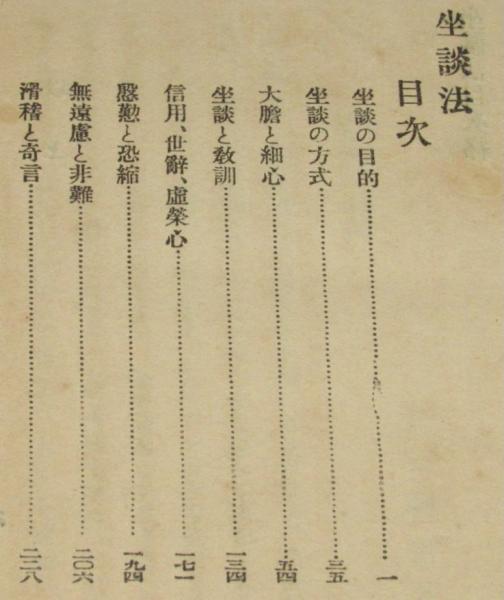 坐談法
目次
坐談の目的……一
坐談の方式……三五
大膽と細心……五四
坐談と敎訓……一三四
信用、世辭、虛榮心……一七一
慇懃と恐縮……一九四
無遠慮と非難……二〇六
滑稽と奇言……二二八